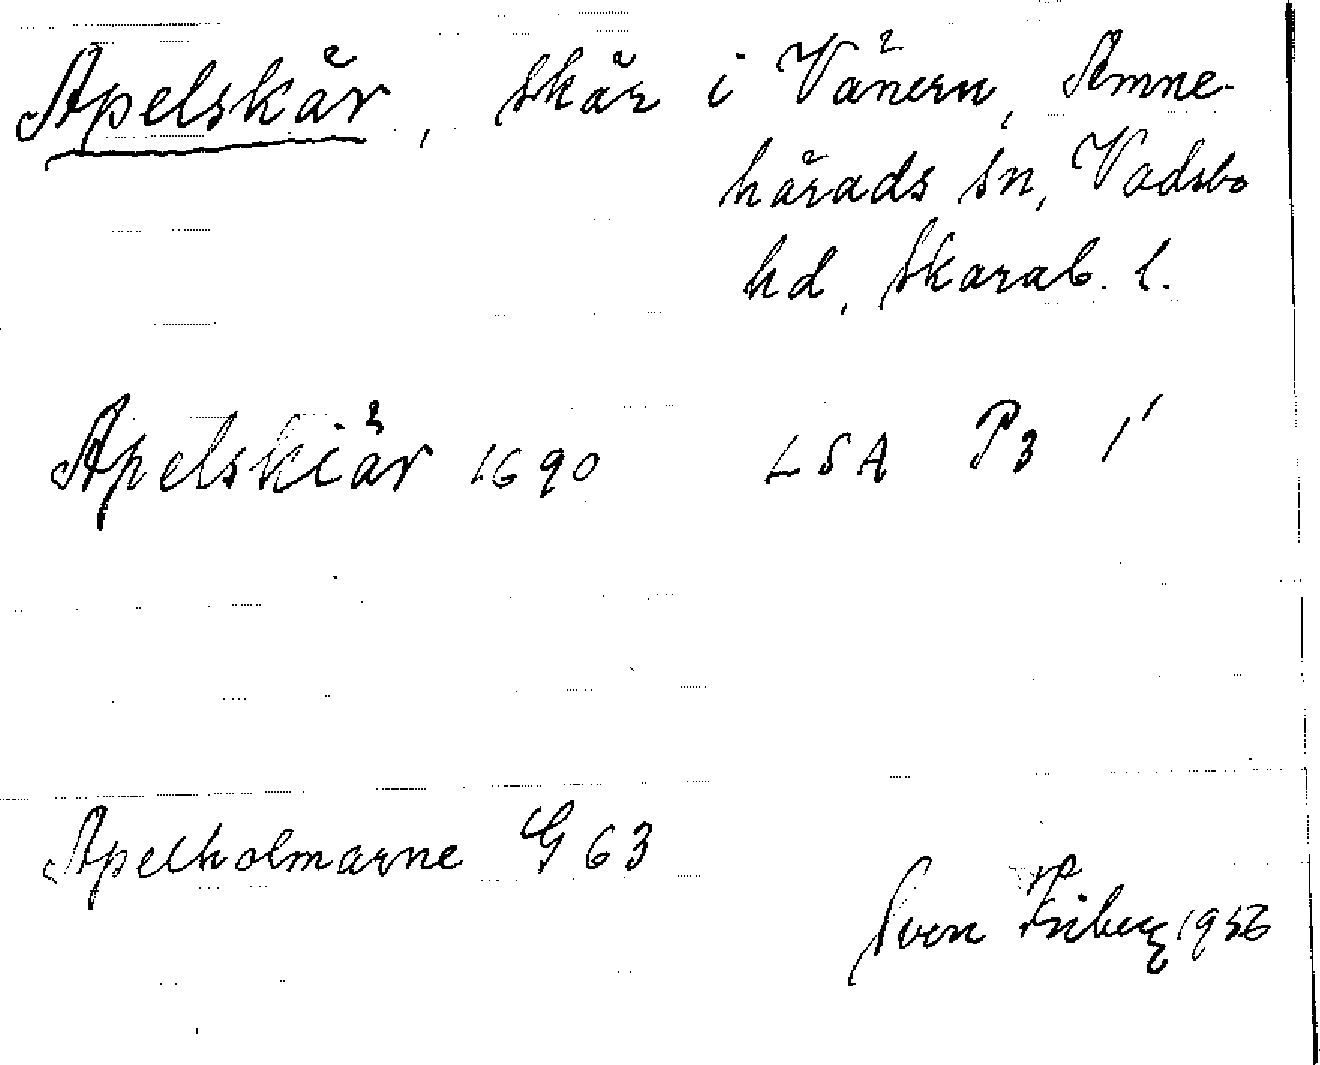 Apelskär, skär i Vänern, Amne-
härads sn, Vadsbo
hd, Skarab. l.
Apelskiär 1690 LSA P3 1'
Apelholmarne G 63
Sven Friberg 1956